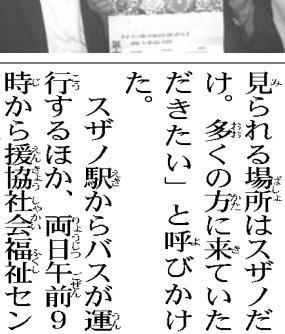 見られる場所はスザノだ
け。多くの方に来ていた
だきたい」と呼びかけ
た。
　スザノ駅からバスが運
行するほか、両日午前９
時から援協社会福祉セン